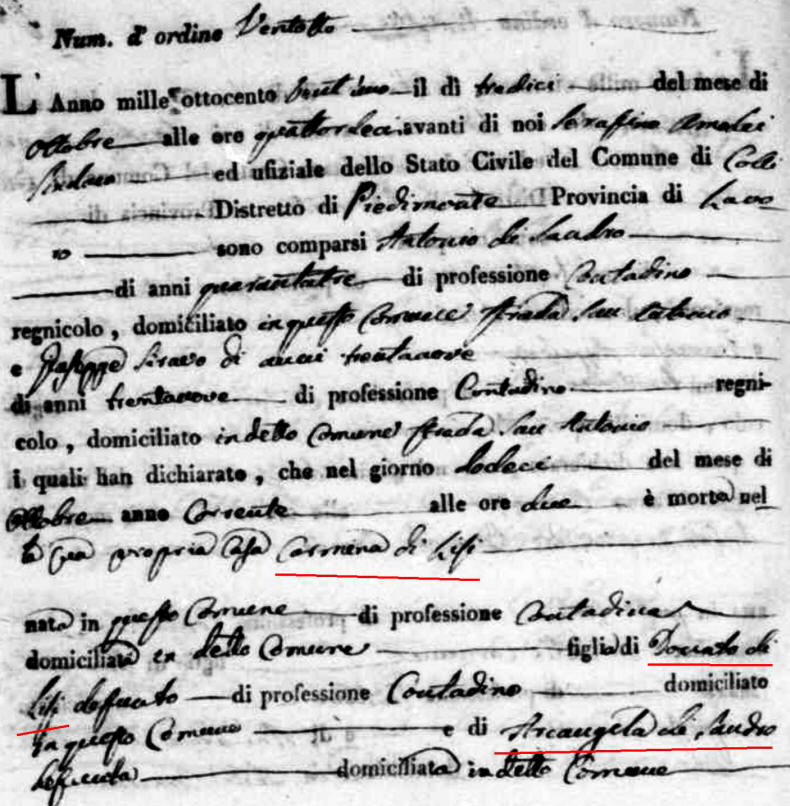 Num. d' ordine Ventotto
L' Anno mille ottocento vent'uno il dì tredici del mese di
ottobre alle ore quattordeci avanti di noi Serafino Amodei
Sindaco ed ufiziale dello Stato Civile del Comune di Colli
Distretto di Piedimonte Provincia di Lavo
ro sono comparsi Antonio di Sandro
di anni quarantatre di professione Contadino
regnicolo, domiciliato in questo Comune strada San Antonio
e Giuseppe Siravo di anni trentanove
di anni trentanove di professione Contadino regni-
colo, domiciliato in detto Comune strada San Antonio
i quali han dichiarato, che nel giorno dodeci del mese di
Ottobre anno Corrente alle ore due è morta nel
la sua propria Casa Carmena di Lisi
nata in questo Comune di professione Contadina
domiciliata in detto Comune figlia di Donato di
Lisi defunto di professione Contadino domiciliato
in questo Comune e di Arcangela di Sandro
defunta domiciliata in detto Comune